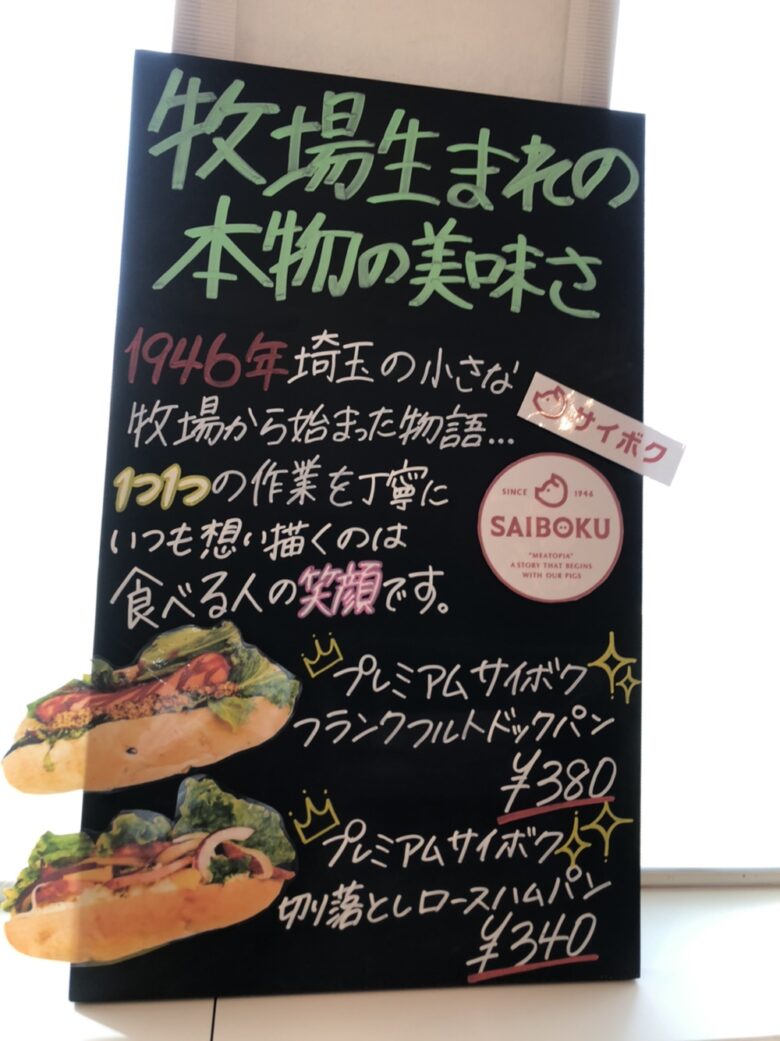 牧場生まれの
本物の美味さ
1946年埼玉の小さな
牧場から始まった物語...
サイボク
1つ1つの作業を丁寧に
いつも想い描くのは
食べる人の笑顔です。
SINCE 1946
SAIBOKU
"MEATOPIA"
A STORY THAT BEGINS
WITH OUR PIGS
プレミアムサイボク
フランクフルトドックパン
¥380
プレミアムサイボク
切り落としロースハムパン
¥340